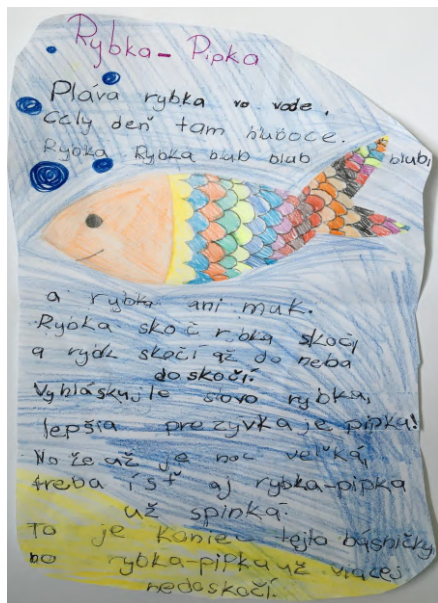 Rybka-Pipka
Pláva rybka vo vode,
Celý deň tam hluboce.
Rybka Rybka blub blub blub,
a rybka ani muk.
Rybka skoč rybka skoč,
a rybk skočí až do neba
doskočí.
Vyhláskujte slovo rybka,
lepšia prezyvka je pipka!
No že až je noc veľká,
treba ísť aj rybka-pipka
už spinká.
To je koniec tejto básničky
bo rybka-pipka už viacej
nedoskočí.